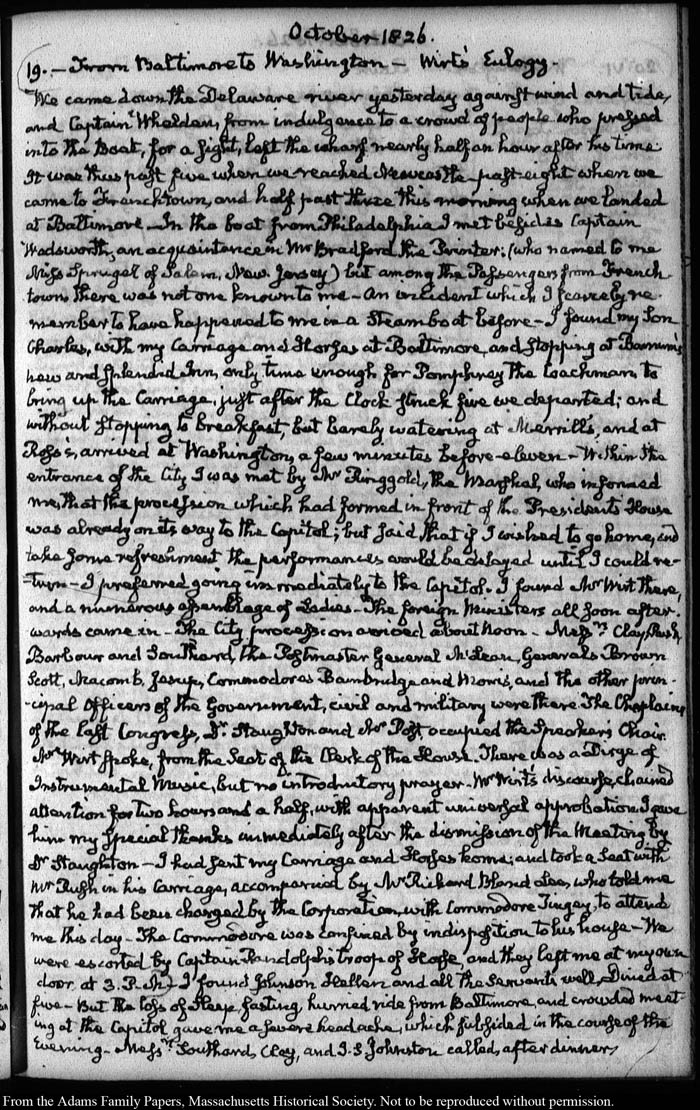 October 1826.
19. — From Baltimore to Washington — Wirt's Eulogy.
We came down the Delaware river yesterday against wind and tide,
and Captain Whelden, from indulgence to a crowd of people who pressed
into the Boat, for a sight, left the wharf nearly half an hour after his time
It was thus past five when we reached Newcastle — past eight when we
came to Frenchtown, and half past three this morning when we landed
at Baltimore — In the boat from Philadelphia I met besides Captain
Wadsworth, an acquaintance in Mr Bradford the Printer; (who named to me
Miss Sprugel of Salem, New Jersey) but among the Passengers from French-
town, there was not one known to me — An incident which I scarcely re-
member to have happened to me in a Steam boat before — I found my Son
Charles, with my Carriage and Horses at Baltimore, and stopping at Barnum's
new and splendid Inn, only time enough for Pomphrey the Coachman, to
bring up the Carriage, just after the Clock struck five we departed; and
without stopping to breakfast, but barely watering at Merrill's, and at
Ross's, arrived at Washington, a few minutes before eleven — Within the
entrance of the City I was met by Mr Ringgold, the Marshal, who informed
me, that the procession which had formed in front of the President's House
was already on its way to the Capitol; but said that if I wished to go home, and
take some refreshment the performances would be delayed until I could re-
turn — I preferred going immediately to the Capitol. I found Mr Wirt there,
and a numerous assemblage of Ladies — The foreign Ministers all soon after-
wards came in — The City procession arrived about Noon — Messrs Clay, Rush,
Barbour and Southard, the Postmaster General McLean, Generals Brown
Scott, Macomb, Jesup, Commodores Bainbridge and Morris, and the other prin-
cipal Officers of the Government, civil and military were there. The Chaplains
of the last Congress, Dr Staughton and Mr Post occupied the Speaker's Chair.
Mr Wirt spoke, from the Seat of the Clerk of the House. There was a Dirge of
Instrumental Music, but no introductory prayer — Mr Wirt's discourse, chained
attention for two hours and a half, with apparent universal approbation. I gave
him my special thanks immediately after the dismission of the Meeting by
Dr Staughton — I had sent my Carriage and Horses home; and took a seat with
Mr Rush in his Carriage, accompanied by Mr Richard Bland Lee, who told me
that he had been charged by the Corporation, with Commodore Tingey, to attend
me this day — The Commodore was confined by indisposition to his house — We
were escorted by Captain Randolph's troop of Horse, and they left me at my own
door at 3. P.M. — I found Johnson Hellen and all the servants well, Dined at
five — But the loss of sleep, fasting, hurried ride from Baltimore, and crowded meet-
ing at the Capitol gave me a severe headache, which subsided in the course of the
Evening — Messrs Southard, Clay, and J. S. Johnston called, after dinner,
From the Adams Family Papers, Massachusetts Historical Society. Not to be reproduced without permission.